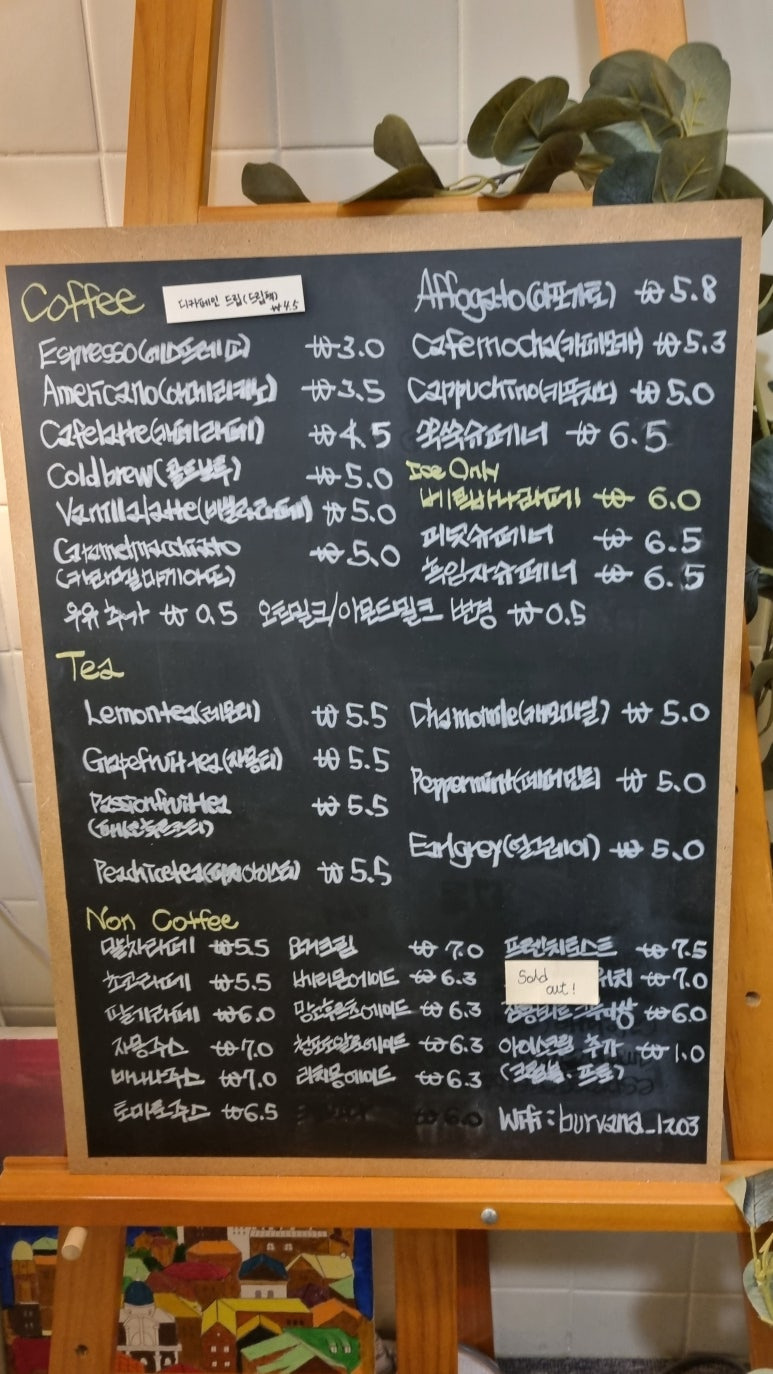 Coffee
디카페인 드립(드립백)
₩4.5
Espresso(에스프레소) ₩3.0
Americano(아메리카노) ₩3.5
Cafelatte(카페라떼) ₩4.5
Coldbrew(콜드브루) ₩5.0
Vanillalatte(바닐라라떼) ₩5.0
Caramelmacchiato ₩5.0
(카라멜마키아또)
Affogato(아포가토) ₩5.8
Cafemocha(카페모카) ₩5.3
Cappuchino(카푸치노) ₩5.0
쑥쑥슈페너 ₩6.5
Ice Only
버르바나라떼 ₩6.0
피넛슈페너 ₩6.5
흑임자슈페너 ₩6.5
우유 추가 ₩0.5 오트밀크/아몬드밀크 변경 ₩0.5
Tea
Lemontea(레몬티) ₩5.5
Grapefruit tea(자몽티) ₩5.5
Passionfruittea ₩5.5
(패션후르츠티)
Peachicetea(피치아이스티) ₩5.5
Chamomile(캐모마일) ₩5.0
Peppermint(페퍼민트) ₩5.0
Earlgrey(얼그레이) ₩5.0
Non Coffee
말차라떼 ₩5.5
초코라떼 ₩5.5
딸기라떼 ₩6.0
자몽주스 ₩7.0
바나나주스 ₩7.0
토마토주스 ₩6.5
₩7.0
베리몽에이드 ₩6.3
망고후르츠에이드 ₩6.3
청포도알로에이드 ₩6.3
리치몽에이드 ₩6.3
₩6.0
프렌치토스트 ₩7.5
Sold
out!
위치 ₩7.0
₩6.0
아이스크림 추가 ₩1.0
Wifi : burvana_1203